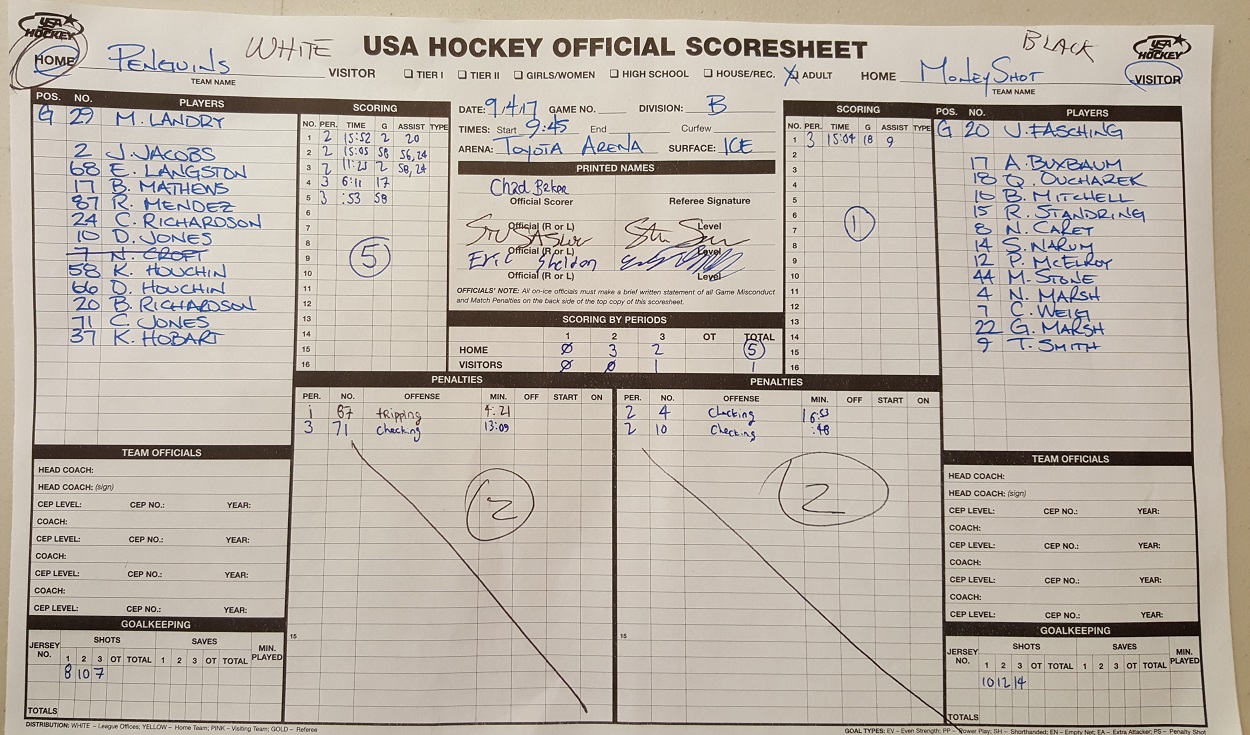 USA HOCKEY
HOME
PENGUINS
WHITE
TEAM NAME
VISITOR
USA HOCKEY OFFICIAL SCORESHEET
☐ TIER I ☐ TIER II ☐ GIRLS/WOMEN ☐ HIGH SCHOOL ☐ HOUSE/REC. X ADULT
HOME
MONEYSHOT
BLACK
TEAM NAME
USA HOCKEY
VISITOR
POS. NO. PLAYERS
G 29 M. LANDRY
2 J. JACOBS
68 E. LANGSTON
17 B. MATHENS
87 R. MENDEZ
24 C. RICHARDSON
10 D. JONES
7 N. CROFT
58 K. HOUCHIN
66 D. HOUCHIN
20 B. RICHARDSON
71 C. JONES
37 K. HOBART
SCORING
NO. PER. TIME G ASSIST TYPE
1 2 15:52 2 20
2 2 15:05 58 56,24
3 2 11:23 2 58,24
4 3 6:11 17
5 3 :53 58
6
7
8
9
10
11
12
13
14
15
16
5
DATE: 9/4/17 GAME NO. DIVISION: B
TIMES: Start 9:45 End Curfew
ARENA: TOYOTA ARENA SURFACE: ICE
PRINTED NAMES
Chad Baker
Official Scorer Referee Signature
Official (R or L) Level
Official (R or L) Level
Eric Sheldon
Official (R or L) Level
OFFICIALS' NOTE: All on-ice officials must make a brief written statement of all Game Misconduct
and Match Penalties on the back side of the top copy of this scoresheet.
SCORING BY PERIODS
1 2 3 OT TOTAL
HOME 0 3 2 5
VISITORS 0 0 1 1
SCORING
NO. PER. TIME G ASSIST TYPE
1 3 15:04 18 9
2
3
4
5
6
7
8
9
10
11
12
13
14
15
16
1
POS. NO. PLAYERS
G 20 J. FASCHING
17 A. BUXBAUM
18 Q. OUCHAREK
10 B. MITCHELL
15 R. STANDRING
8 N. CARET
14 S. NARUM
12 P. MCELROY
44 M. STONE
4 N. MARSH
7 C. WEIG
22 G. MARSH
9 T. SMITH
PENALTIES
PER. NO. OFFENSE MIN. OFF START ON
1 87 tripping 4:21
3 71 Checking 13:09
2
15
PENALTIES
PER. NO. OFFENSE MIN. OFF START ON
2 4 Checking 16:53
2 10 Checking :48
2
15
TEAM OFFICIALS
HEAD COACH:
HEAD COACH: (sign)
CEP LEVEL: CEP NO.: YEAR:
COACH:
CEP LEVEL: CEP NO.: YEAR:
COACH:
CEP LEVEL: CEP NO.: YEAR:
COACH:
CEP LEVEL: CEP NO.: YEAR:
GOALKEEPING
JERSEY NO. SHOTS SAVES MIN. PLAYED
1 2 3 OT TOTAL 1 2 3 OT TOTAL
8 10 7
TOTALS
TEAM OFFICIALS
HEAD COACH:
HEAD COACH: (sign)
CEP LEVEL: CEP NO.: YEAR:
COACH:
CEP LEVEL: CEP NO.: YEAR:
COACH:
CEP LEVEL: CEP NO.: YEAR:
COACH:
CEP LEVEL: CEP NO.: YEAR:
GOALKEEPING
JERSEY NO. SHOTS SAVES MIN. PLAYED
1 2 3 OT TOTAL 1 2 3 OT TOTAL
10 12 14
TOTALS
DISTRIBUTION: WHITE – League Offices; YELLOW – Home Team; PINK – Visiting Team; GOLD – Referee
GOAL TYPES: EV – Even Strength; PP – Power Play; SH – Shorthanded; EN – Empty Net; EA – Extra Attacker; PS – Penalty Shot